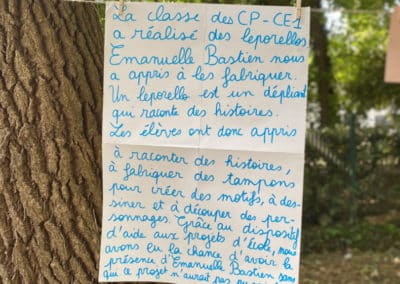 La classe des CP-CE1
a réalisé des leporellos
Emanuelle Bastien nous
a appris à les fabriquer.
Un leporello est un dépliant
qui raconte des histoires.
Les élèves ont donc appris
à raconter des histoires,
à fabriquer des tampons
pour créer des motifs, à des-
siner et à découper des per-
sonnages. Grâce au dispositif
d'aide aux projets d'école, nous
avons eu la chance d'avoir la
présence d'Emanuelle Bastien sans
qui ce projet n'aurait pas